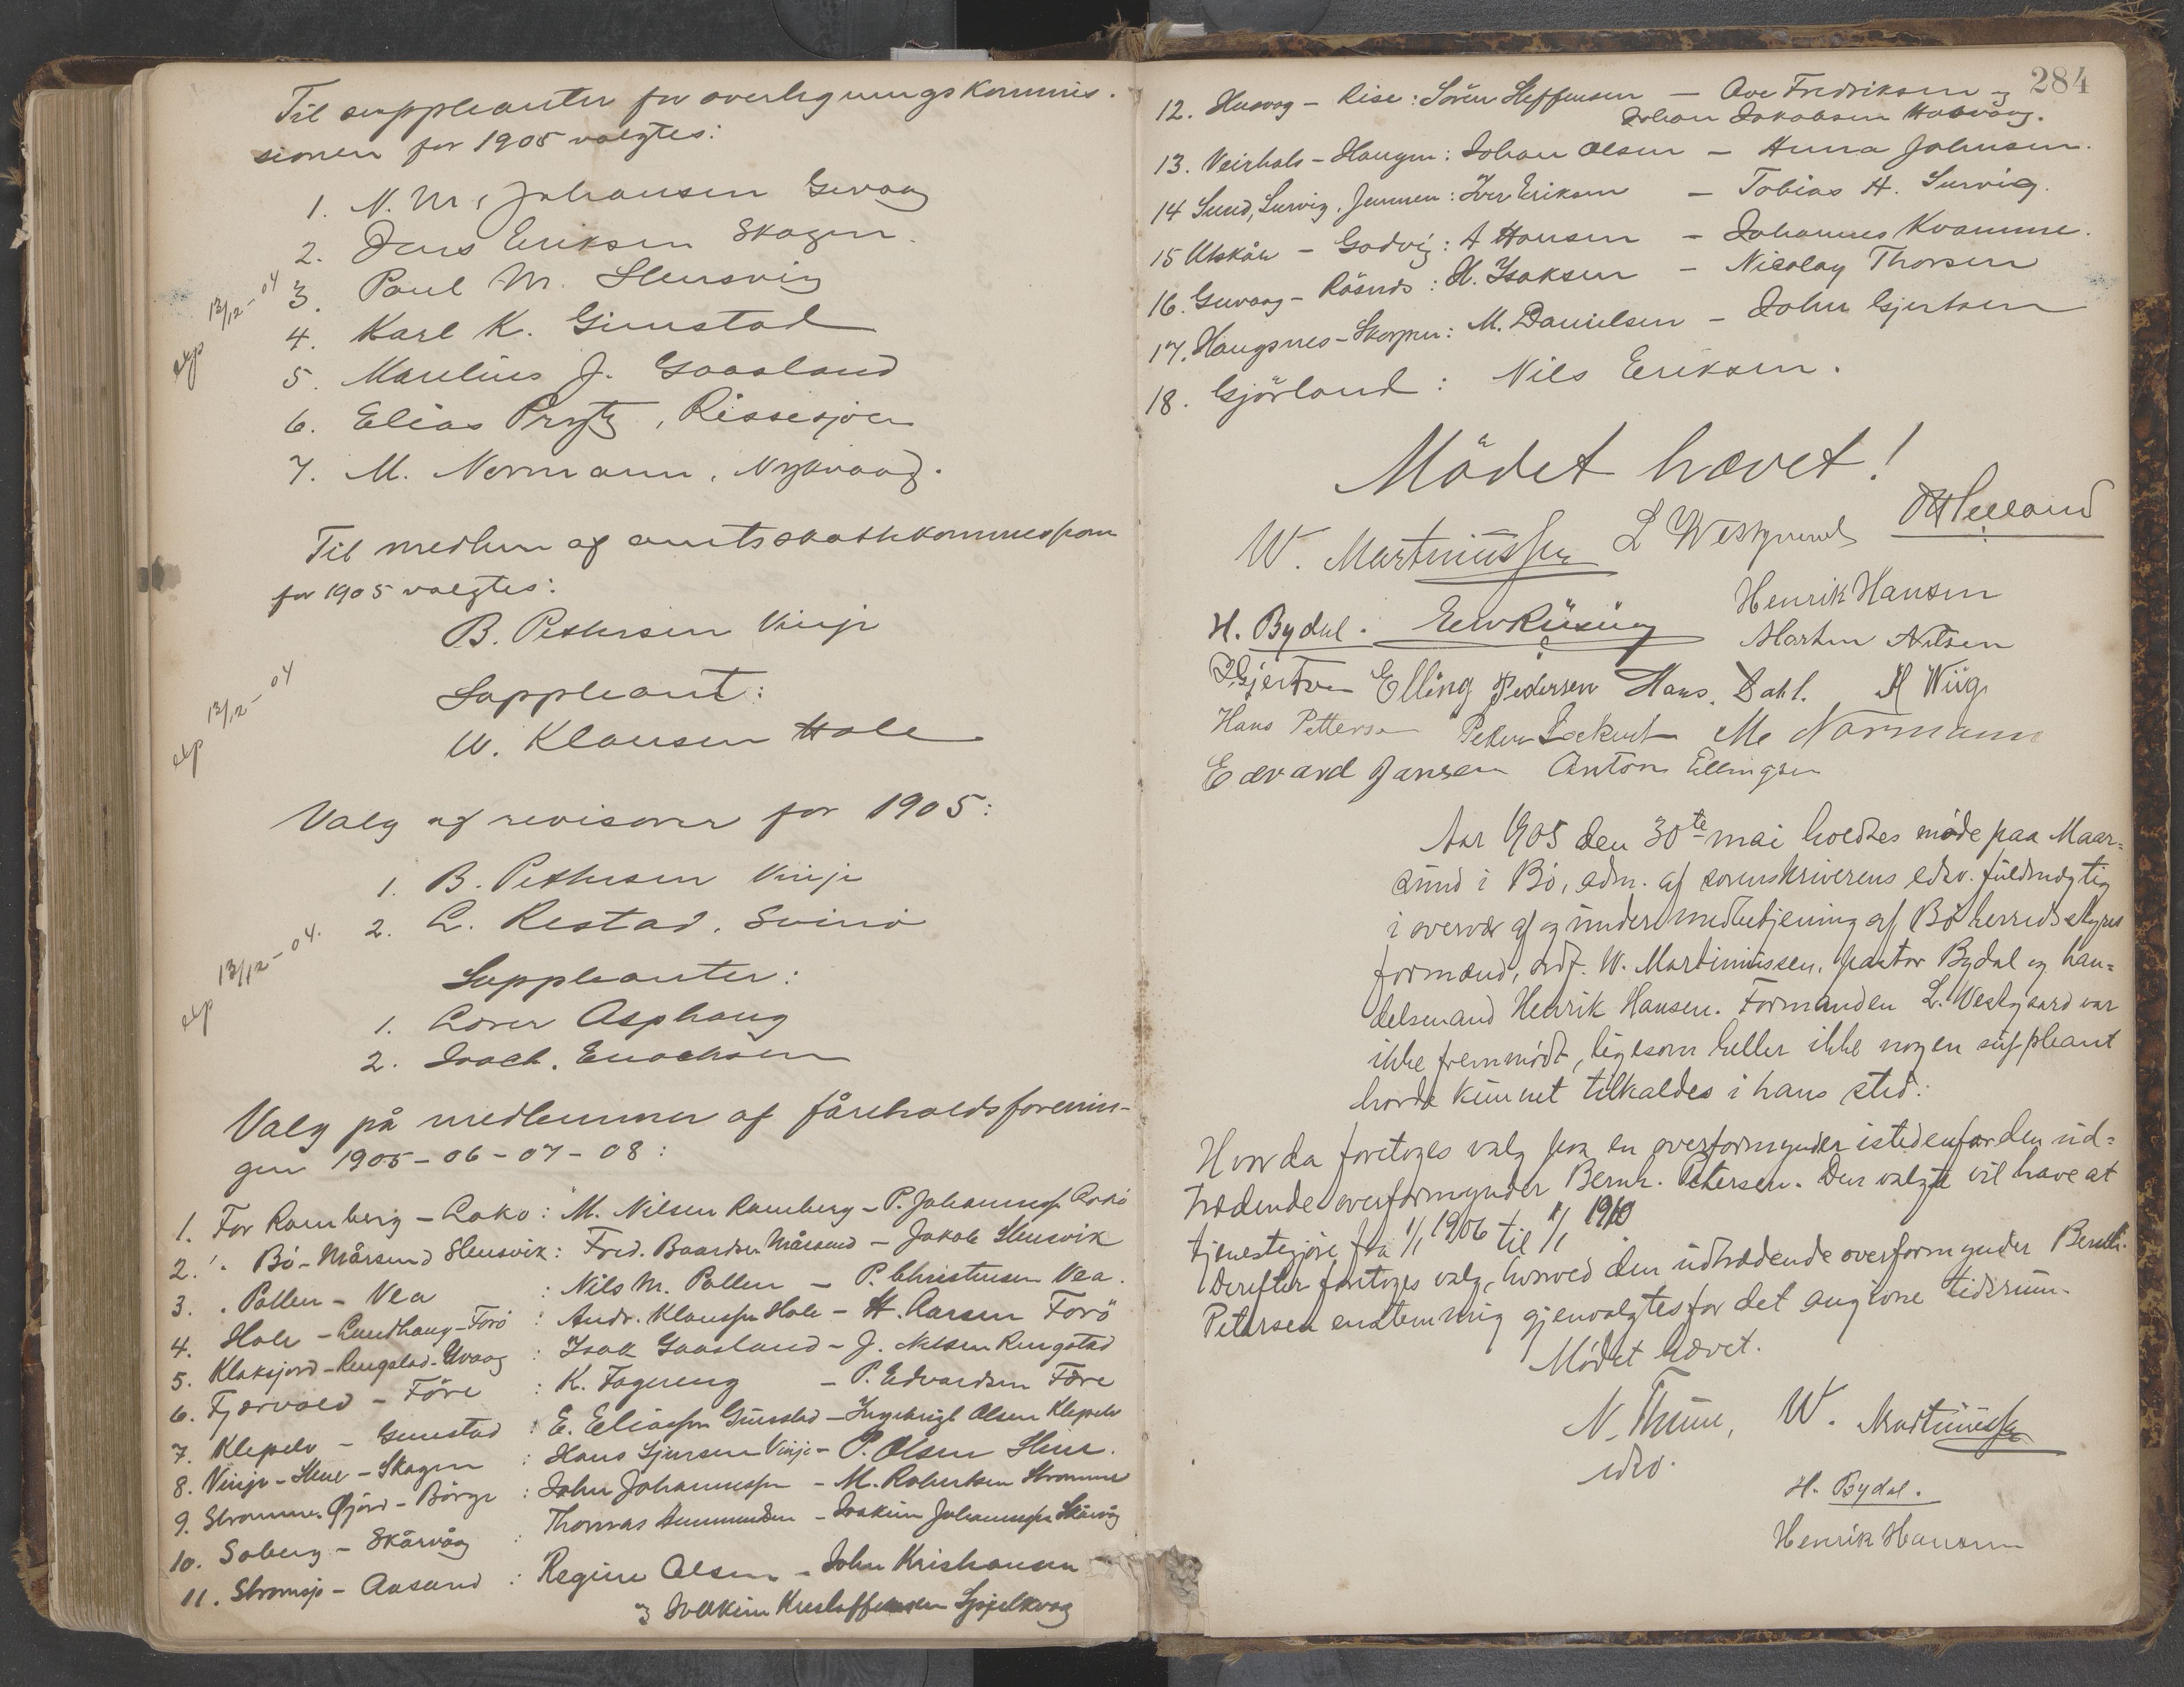 Til suppleanter for overligningskommis-
sionen for 1905 valgtes:
1. N. M. Johansen Guvaag
2. Jens Eriksen Skagen.
3. Paul M. Stensvig
exp 13/12-04
4. Karl K. Gimstad
5. Marelius J. Gaasland
6. Elias Prytz, Rissesjøen
7. M. Normann, Nykvaag.
Til medlem af amtsskattekommissionen
for 1905 valgtes:
B. Pettersen Vinje
exp 13/12-04
Suppleant:
W. Klausen Hole
Valg af revisorer for 1905:
1. B. Pettersen Vinje
2. L. Restad, Svinö
exp 13/12-04.
Suppleanter:
1. Asphaug
2. Enochsen
Valg på medlemmer af fåreholdsforenin-
gen 1905-06-07-08:
1. For Ramberg - : M. Nilsen Ramberg - P. Johanness.
2. " Bö - Mårsund Stensvik: Fred. Baardsen Mårsund - Jakob Stensvik
3. " Pollen - Vea : Nils M. Pollen - P. Christensen Vea.
4. Hole - Lundhaug - Förö : Andr. Klaussen Hole - H. Larsen Förö
5. Klaksjord - Ringstad - Uvaag : Isak Gaasland - J. Nilsen Ringstad
6. Fjærvold - Före : K. Fagereng - P. Edvardsen Före
7. Klepelv - Gimstad : E. Eliassen Gimstad - Ingebrigt Olsen Klepelv
8. Vinje - Steine - Skagen : Hans Sjursen Vinje - P. Olsen Steine.
9. Straumen Øjord - Börge : John Johannessen - M. Robertsen Straume
10. Soberg - Skårvåg : Thomas - Joakim Johannessen Skårvåg
11. Straumsjö - Aasand : Regine Olsen - John Kristiansen
og Joakim Kristoffersen Spjelkvaag
284
12. Husvag - Rise: Sören Steffensen - Ove Fredriksen og
Johan Jakobsen Hovaag.
13. Veirhals - Haugen: Johan Olsen - Anna Johnsen.
14 Sund, Survig, Jennen: Iver Eriksen - Tobias H. Survig.
15 Utskår - Godvig: A Hansen - Johannes Kvamme.
16. Guvaag - Råsnes: H. Isaksen - Nicolay Thorsen
17. Haugsnes - Skorpen: M. Danielsen - John Gjertsen
18. Gjörland: Nils Eriksen.
Mödet hævet!
W. Martinussen L Westgaard
H. Bydal. Henrik Hansen
Martin Nilsen
Gjertsen Elling Pedersen Hans. Dahl. H Wiig
Hans Pettersen Peder Lockert M Normann
Edvard Jansen Anton Ellingsen
Aar 1905 den 30te mai holdtes møde paa Maar-
sund i Bö, adm. af sorenskriverens edsv. fuldmægtig
i overvær af og under medbetjening af Bö herredsstyres
formænd, ordf. W. Martinussen, pastor Bydal og han-
delsmand Henrik Hansen. Formanden L. Westgaard var
ikke fremmødt, ligesom heller ikke nogen suppleant
havde kunnet tilkaldes i hans sted.
Hvorda foretoges valg paa en overformynder istedenfor den ud-
trædende overformynder Bernh. Petersen. Den valgte vil have at
tjenestegjøre fra 1/1 1906 til 1/1 1910
Derefter foretoges valg, hvorved den udtrædende overformynder Bernh.
Petersen enstemmig gjenvalgtes for det angivne tidsrum.
Mødet hævet.
N. Thune, W. Martinussen
edsv.
H. Bydal.
Henrik Hansen